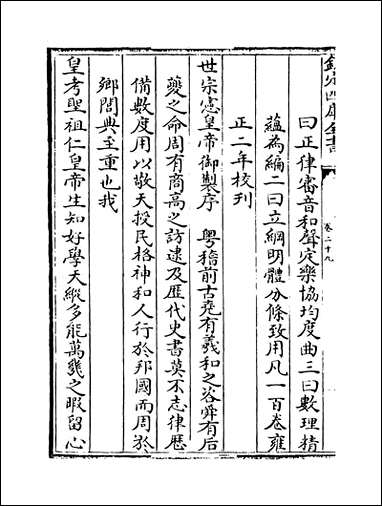 欽定四庫全書
卷二十九
曰正律審音和聲定樂協均度曲三曰數理精
蘊為編二曰立綱明體分條致用凡一百卷雍
正二年校刋
世宗憲皇帝御製序　粤稽前古堯有羲和之咨舜有后
夔之命周有商高之訪逮及歴代史書莫不志律歴
備數度用以敬天授民格神和人行於邦國而周於
鄉閭典至重也我
皇考聖祖仁皇帝生知好學天縱多能萬幾之暇留心